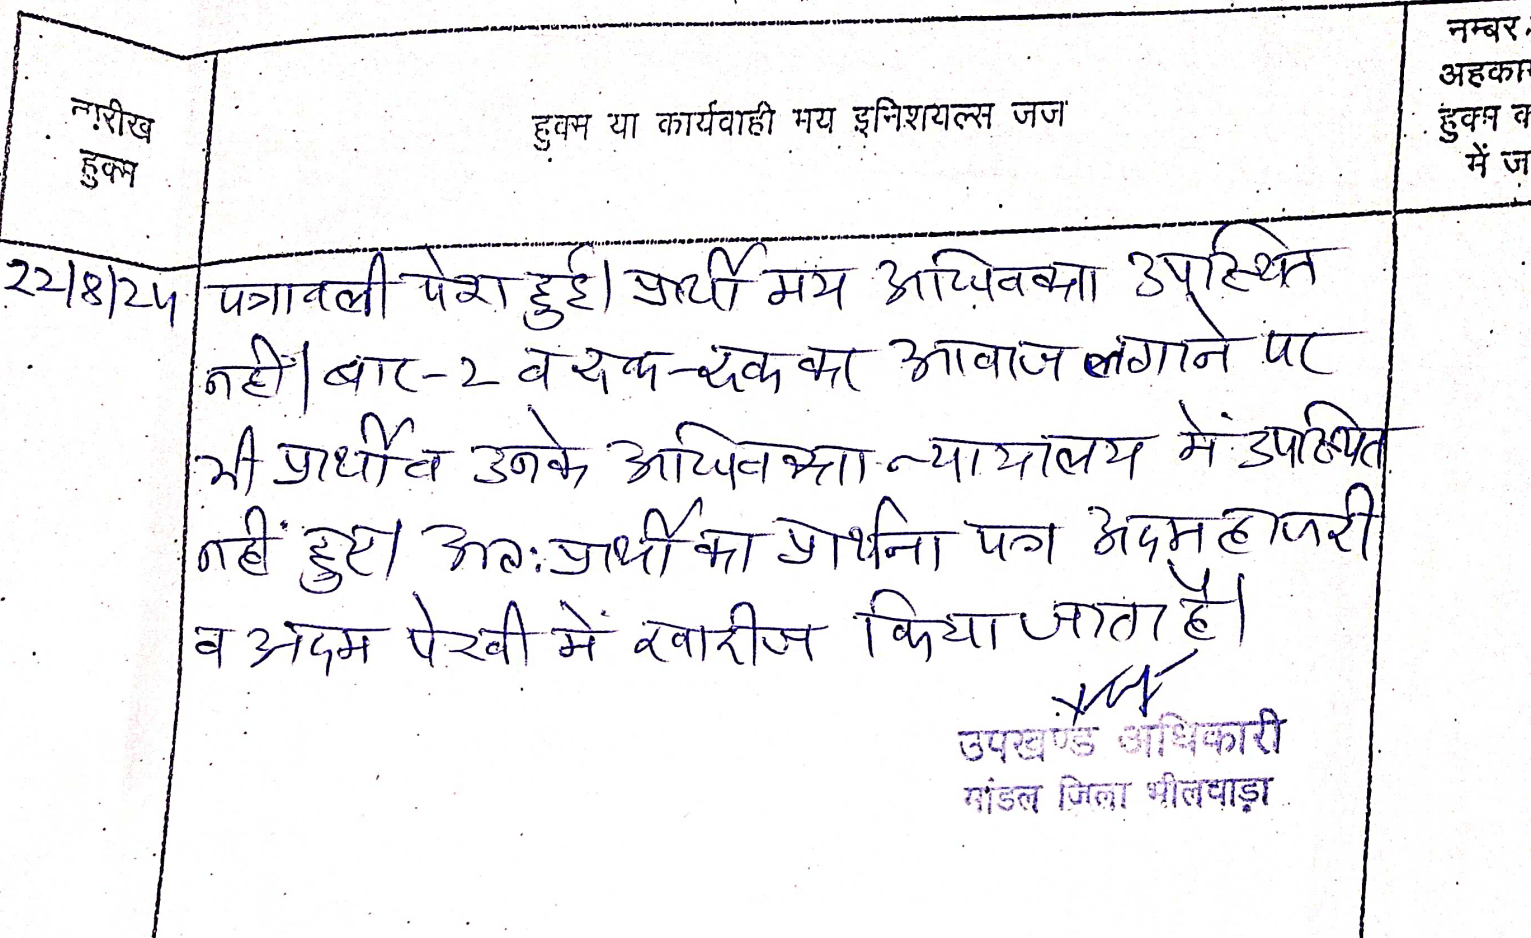 तारीख
हुक्म
हुक्म या कार्यवाही मय इनिशयल्स जज
नम्बर
अहकाम
हुक्म क
में ज
22/8/24 पत्रावली पेश हुई। प्रार्थी मय अधिवक्ता उपस्थित
नहीं। बार-2 व रुक-रुक कर आवाज लगाने पर
भी प्रार्थी व उनके अधिवक्ता न्यायालय में उपस्थित
नहीं हुए। अतः प्रार्थी का प्रार्थना पत्र अदम हाजरी
व अदम पेरवी में खारीज किया जाता है।
उपखण्ड अधिकारी
मांडल जिला भीलवाड़ा